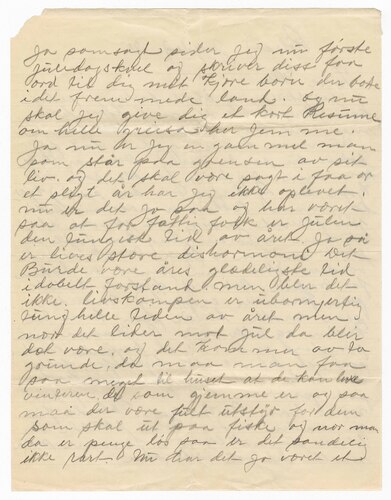 Ja somsagt sider jeg nu første
juledagskvel og skriver diss faa
ord til dig mit kjøre born der borte
i det fremmede land. Og nu
skal jeg give dig et kort Resume
om helle greiea her jemme.
Ja nu er jeg en gammel man
som står paa grensen av sit
liv. og det skal vøre sagt i faa or
et sligt år har jeg ikke oplevet.
nu er det jo saa og har vøret
saa at for fattig folk er julen
den tungeste tid av året. Ja så
er livets store disharmoni. Det
Burde vøre året gladeligste tid
i dobelt forstand men blir det
ikke. livskampen er ubarmjertig
tung helle tiden av året men
nor det lider mot jul da blir
det vøre, og det kommer av to
grunde, da maa man faa
saa meget til huset at de kan leve
vinteren de som gjemme er og saa
maa der vøre fult utstyr for dem
som skal ut paa fiske og nor man
da er penge løs saa er det sandeli
ikke rart. Nu har det jo vøret et